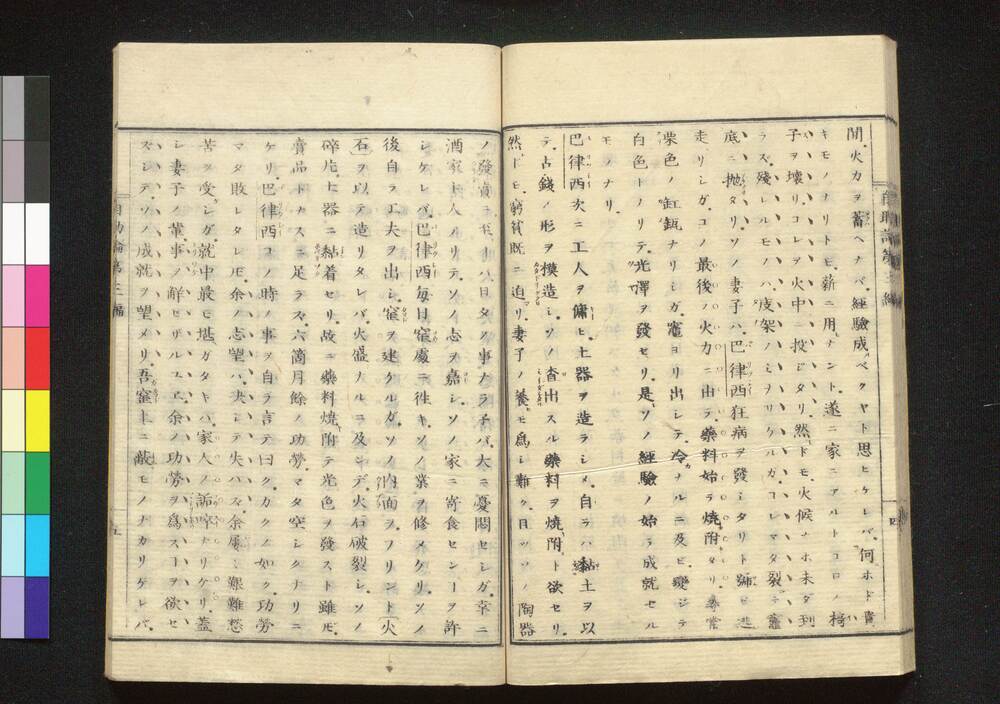 間。火力ヲ蓄ヘナバ。經驗成ベクヤト思ヒケレバ。何ホド貴
キモノナリトモ。薪ニ用ナント。遂ニ家ニアルトコロノ椅
子ヲ壞リコレヲ火中ニ投ジタリ。然ドモ。火候ナホ未ダ到
ラス。殘レルモノハ。皮架ノミヲリケルガ。コレマタ裂テ竈
底ニ抛タリ。ソノ妻子ハ。巴律西狂病ヲ發シタリト
走リシガ。コノ最後ノ火力ニ由ラ。藥料始ラ燒附タリ。尋常
栗色ノ缸瓿ナリシガ。竈ヨリ出シテ。冷カナルニ及ビ變ジテ
白色トナリテ。光澤ヲ發セリ。是ソノ經驗ノ始ラ成就セル
モノナリ。
巴律西次ニ工人ヲ傭ヒ。土器ヲ造ラシメ。自ラハ黏土ヲ以
テ。古錢ノ形ヲ摸造シ。ソノ査出スル藥料ヲ燒附ント欲セリ。
然ドモ。窮貧既ニ迫リ。妻子ノ養モ爲シ難ク。日ツソノ陶器
ノ發賣
酒家主人アリテ。ソノ志ヲ嘉シ。ソノ家ニ寄食センコヲ許
シケレバ。巴律西每日窰處ニ徃キ。ソノ業ヲ修メケリ。ソノ
後自ラ工夫ヲ出シ。窰ヲ建クルガ。ソノ内面ヲ。フリント火
石ヲ以テ造リタレバ。火盛ナルニ及ンデ。火石破裂シ。ソノ
碎片。土器ニ黏着セリ。故ニ藥料燒附テ光色ヲ發スト雖モ。
賣品トナスニ足ラス。六箇月餘ノ功勞。マタ空シクナリニ
ケリ。巴律西コノ時ノ事ヲ自ラ言テ曰ク。カクノ如ク。功勞
マタ敗レタレモ。余ノ志望ハ。決シテ失ハズ。余屢シ艱難愁
苦ヲ受シガ。就中最モ堪ガタキハ。家人ノ詬誶ナリケリ。蓋
シ妻子ノ葷事ヲ解ヒザルユエ。余ノ功勞ヲ爲スコヲ欲セ
ズシテ。ソノ成就ヲ望メリ。吾窰上ニ蔽モノナカリケレバ。
自助論第三編
五